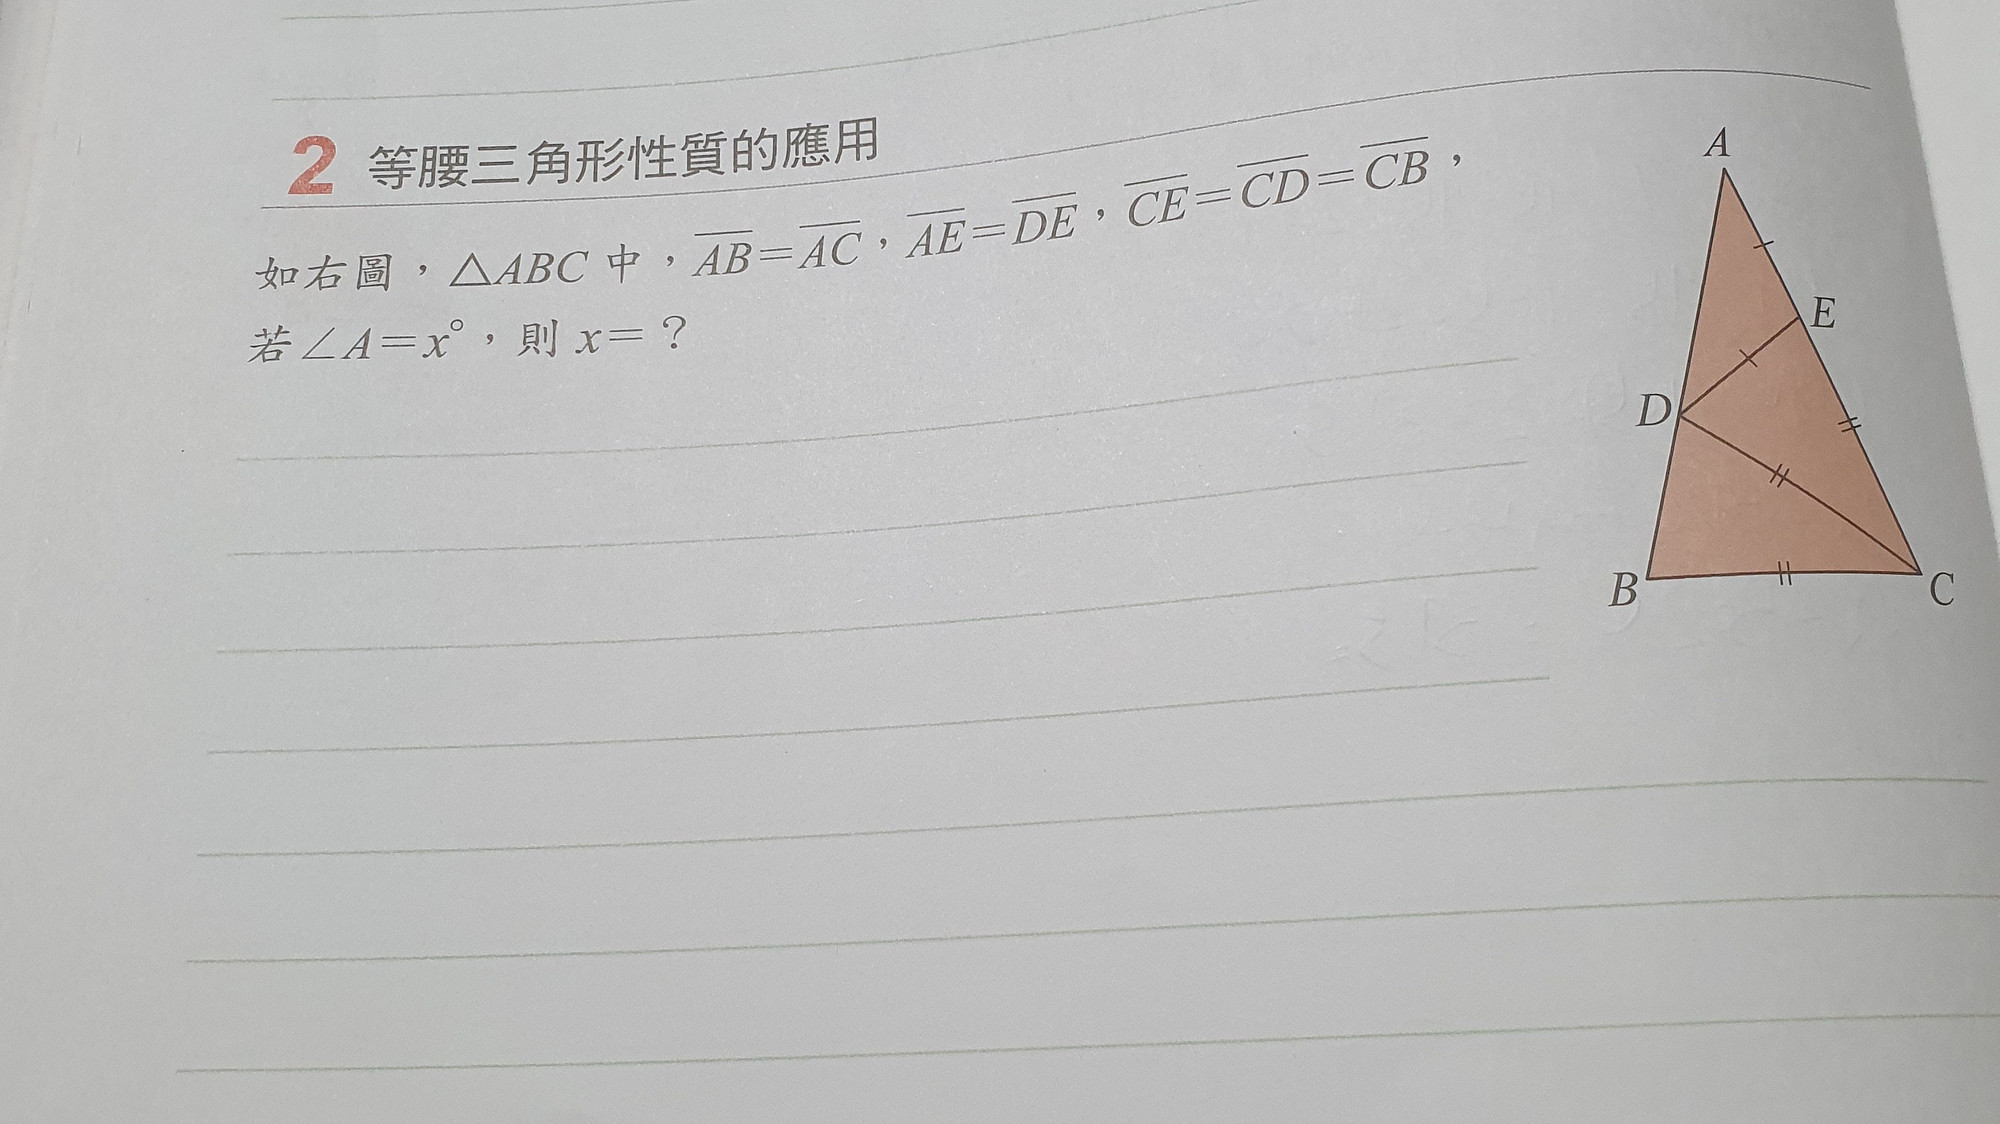 2 等腰三角形性質的應用
如右圖，△ABC 中，\overline{AB}=\overline{AC}，\overline{AE}=\overline{DE}，\overline{CE}=\overline{CD}=\overline{CB}，
若∠A=x°，則 x=？
A
E
D
B
C